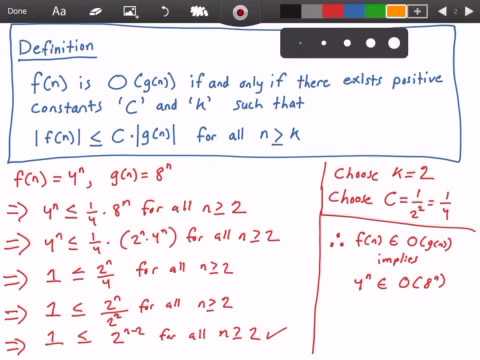 Done Aa 2
Definition
f(n) is O(g(n)) if and only if there exists positive
constants 'C' and 'k' such that
|f(n)| ≤ C·|g(n)| for all n ≥ k
f(n) = 4ⁿ, g(n) = 8ⁿ
⇒ 4ⁿ ≤ 1/4 · 8ⁿ for all n ≥ 2
⇒ 4ⁿ ≤ 1/4 · (2ⁿ·4ⁿ) for all n ≥ 2
⇒ 1 ≤ 2ⁿ/4 for all n ≥ 2
⇒ 1 ≤ 2ⁿ/2² for all n ≥ 2
⇒ 1 ≤ 2ⁿ⁻² for all n ≥ 2 ✓
Choose k = 2
Choose C = 1/2² = 1/4
∴ f(n) ∈ O(g(n))
implies
4ⁿ ∈ O(8ⁿ)